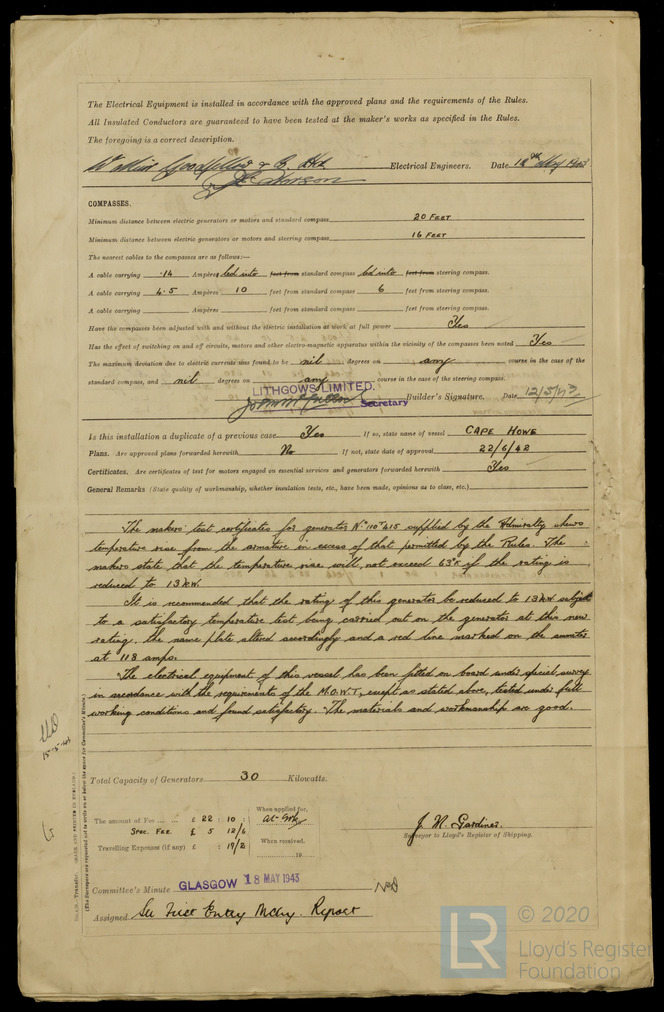 The Electrical Equipment is installed in accordance with the approved plans and the requirements of the Rules.
All Insulated Conductors are guaranteed to have been tested at the maker's works as specified in the Rules.
The foregoing is a correct description.
Electrical Engineers. Date 12th May 1943
COMPASSES.
Minimum distance between electric generators or motors and standard compass 20 FEET
Minimum distance between electric generators or motors and steering compass 16 FEET
The nearest cables to the compasses are as follows:—
A cable carrying .14 Ampères led into feet from standard compass led into feet from steering compass.
A cable carrying 4.5 Ampères 10 feet from standard compass 6 feet from steering compass.
A cable carrying Ampères feet from standard compass feet from steering compass.
Have the compasses been adjusted with and without the electric installation at work at full power Yes
Has the effect of switching on and off circuits, motors and other electro-magnetic apparatus within the vicinity of the compasses been noted Yes
The maximum deviation due to electric currents was found to be nil degrees on any course in the case of the
standard compass, and nil degrees on any course in the case of the steering compass.
LITHGOWS LIMITED.
Secretary Builder's Signature. Date 12/5/43
Is this installation a duplicate of a previous case Yes If so, state name of vessel CAPE HOWE
Plans. Are approved plans forwarded herewith No If not, state date of approval 22/6/42
Certificates. Are certificates of test for motors engaged on essential services and generators forwarded herewith Yes
General Remarks (State quality of workmanship, whether insulation tests, etc., have been made, opinions as to class, etc.)
The makers' test certificates for generator No 110415 supplied by the Admiralty shews
temperature rise from the armature in excess of that permitted by the Rules. The
makers state that the temperature rise will not exceed 63°F if the rating is
reduced to 13 kW.
It is recommended that the rating of this generator be reduced to 13 kW subject
to a satisfactory temperature test being carried out on the generator at this new
rating. The name plate altered accordingly and a red line marked on the ammeter
at 118 amps.
The electrical equipment of this vessel has been fitted on board under special survey
in accordance with the requirements of the M.O.W.T, except as stated above, tested under full
working conditions and found satisfactory. The materials and workmanship are good.
15-5-43
Total Capacity of Generators 30 Kilowatts.
The amount of Fee £ 22 : 10 :
SPEC. FEE £ 5 12/6
Travelling Expenses (if any) £ : 19/2
When applied for,
When received.
19
J. N. Gardiner.
Surveyor to Lloyd's Register of Shipping.
Committee's Minute GLASGOW 18 MAY 1943
Assigned See First Entry Mchy. Report
LR
© 2020
Lloyd's Register
Foundation